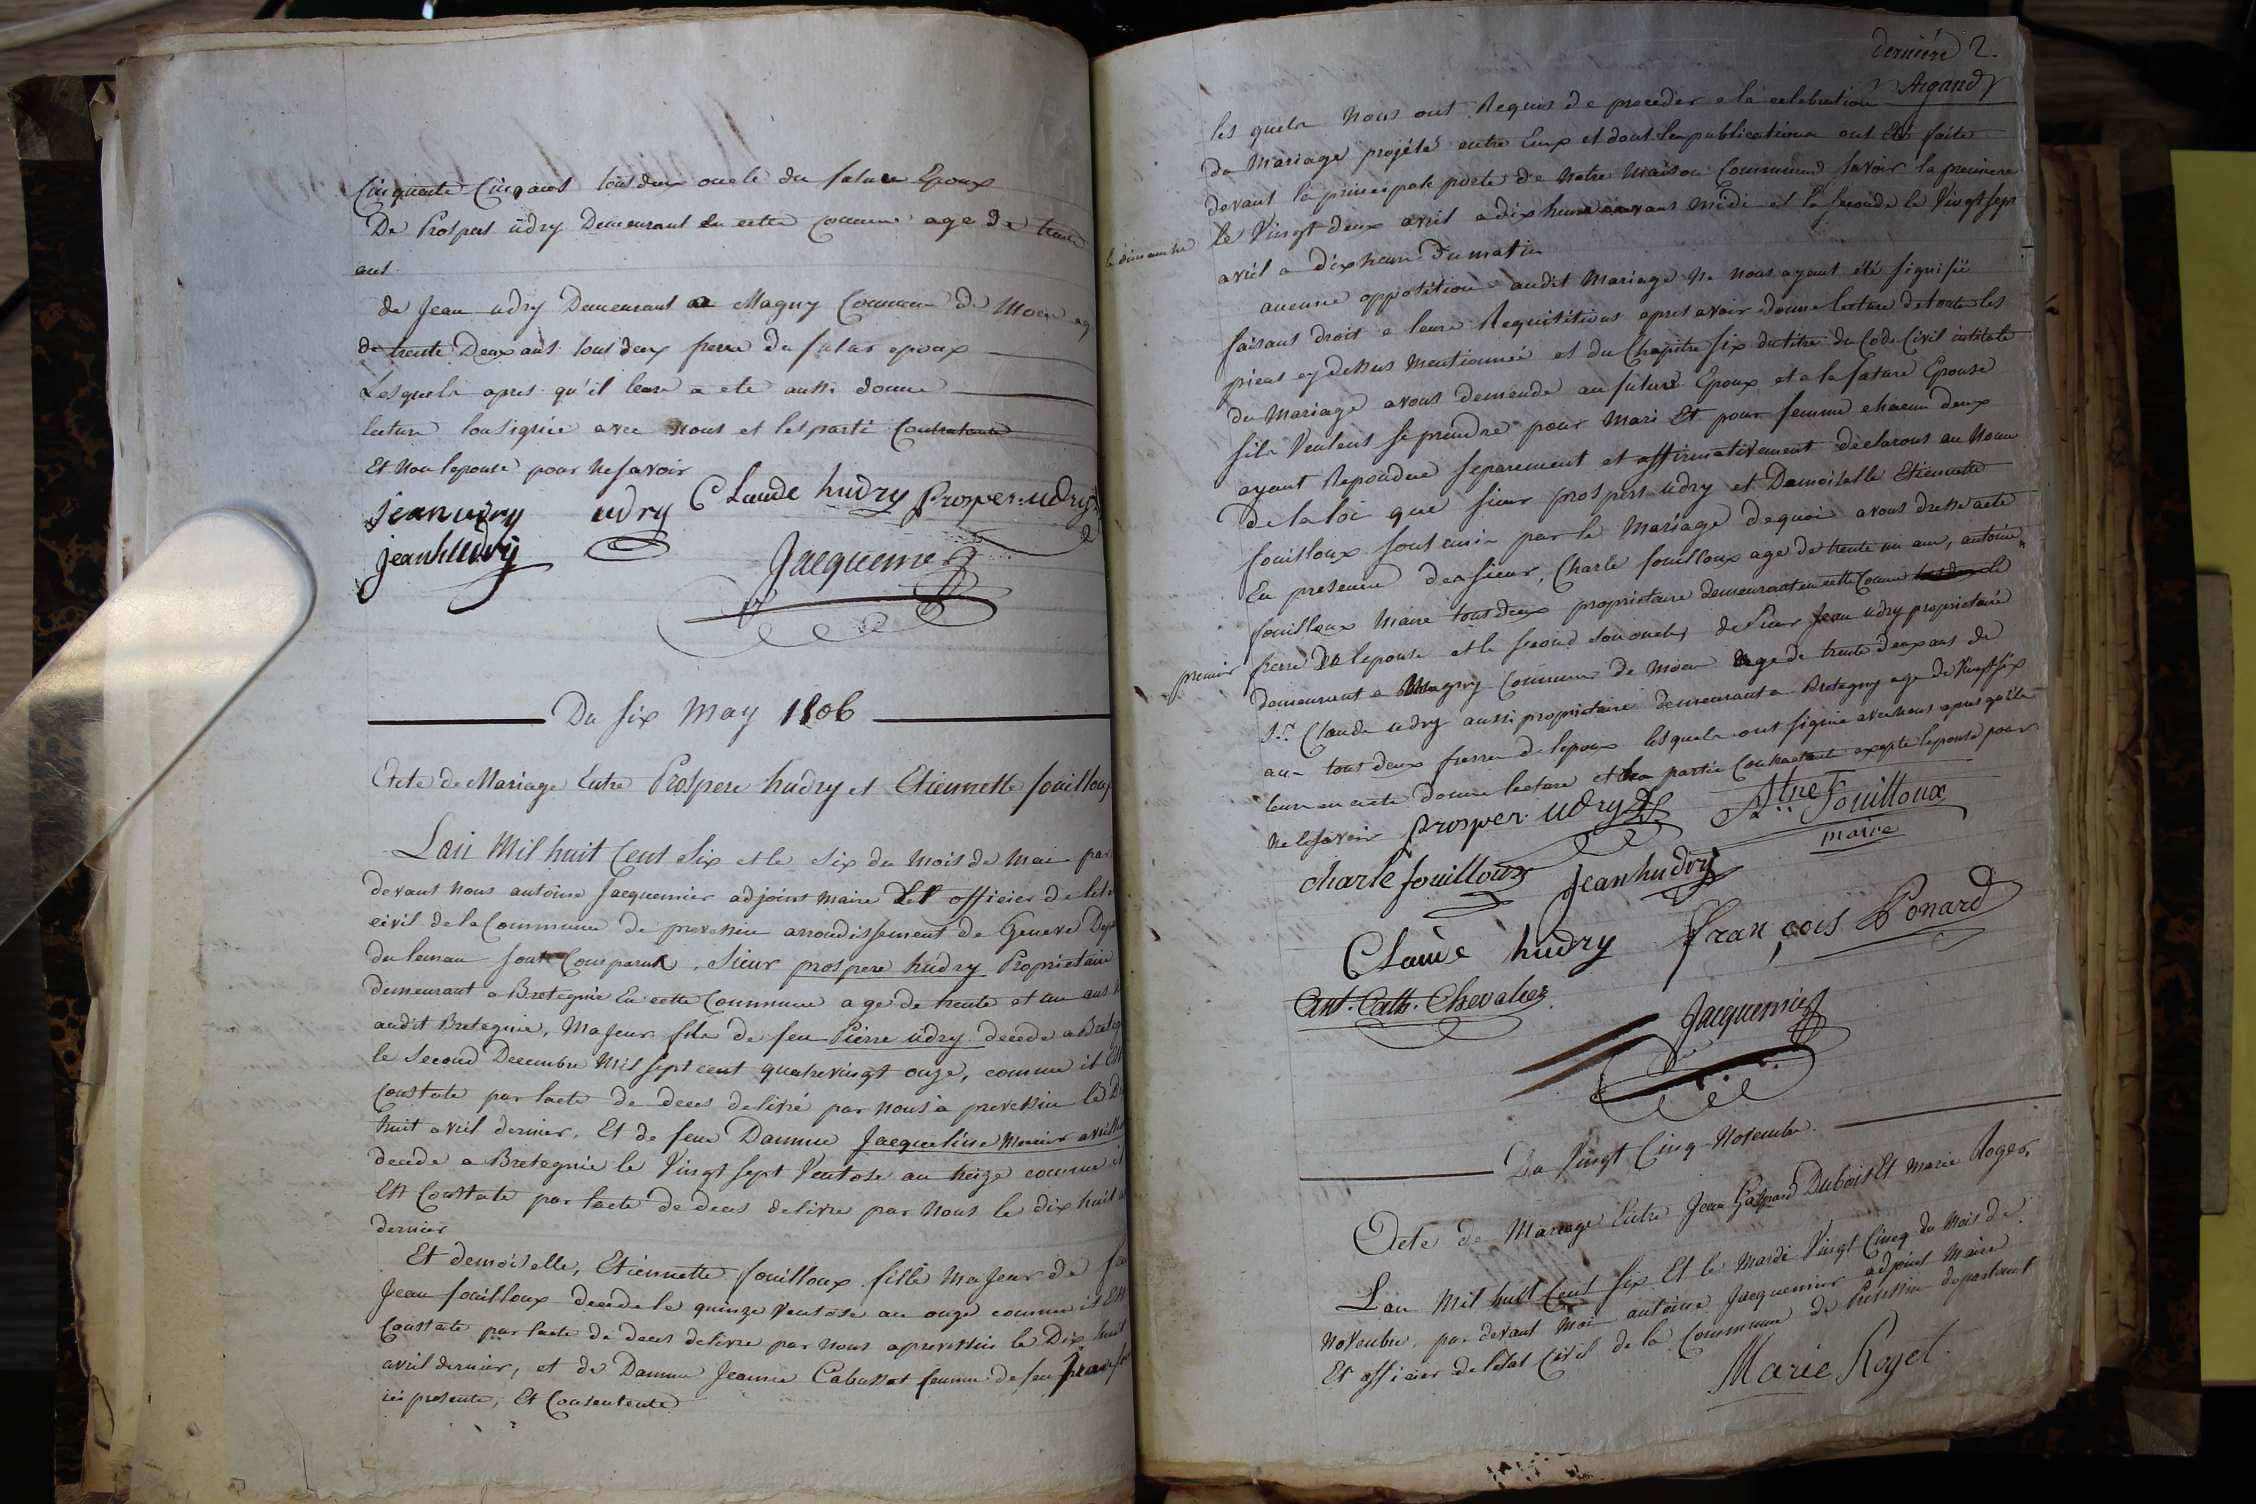 Cinquante Cinq ans tous deux oncle du futur Epoux
De Prosper udry Demeurant en cette Commune age de trente
ans
de Jean udry Demeurant a Magny Commune de Moen
de trente Deux ans tous deux frere du futur epoux
Lesquels apres qu'il leur a ete aussi donne
lecture sousignée avec nous et les parti Contractante
Et non lepouse pour ne savoir
Jean udry udry Claude hudry Prosper udry
jean hudry
Jacquemier
Du six May 1806
Acte de Mariage Entre Prospere hudry et Etiennette fouilloux
Lan Mil huit Cent Six et le six du mois de Mai par
devant nous antoine Jacquemier adjoint maire officier de
civil de la Commune de prevessin arrondissement de Geneve
du leman sont Comparus, Sieur prospere hudry Proprietaire
demeurant a Bretegnie En cette Commune age de trente et un ans
audit Bretegnie, Majeur fils de feu Pierre udry decede a
le second Decembre Mil sept cent quatrevingt onze, comme il Est
Constate par lacte de deces delivré par nous à prevessin le
huit avril dernier, Et de feue Damme Jacqueline Mercier
decede a Bretegnie le Vingt sept Ventose an treize comme il
Est Constate par lacte de deces delivre par Nous le dix huit
dernier
Et demoiselle, Etiennette fouilloux fille Majeur de
Jean fouilloux decede le quinze ventose an onze comme il Est
Constate par lacte de deces delivre par nous a prevessin le Dix huit
avril dernier, et de Damme Jeanne Cabussat femme de feu
ici presente, Et Consentente
derniére 2.
Argand
les quels Nous ont Requis de proceder a la celebration
du Mariage projété entre Eux et dont les publications ont Eté faite
devant la principale porte de Notre maison Commune savoir la premiere
le dimanche
le Vingt deux avril a dix heure avant midi et la seconde le Vingt sept
avril a dix heure du matin
aucune opposition audit Mariage Ne nous ayant été signifié
faisant droit a leure Requisitions apres avoir donne lecture de toutes les
pieces cy dessus Mentionnée et du Chapitre six du titre du Code Civil intitule
du Mariage avons demende au future Epoux et a la future Epouse
sils Veulent se prendre pour Mari Et pour femme chacun deux
ayant Repondue separement et affirmativement declarons au Nom
de la loi que sieur prospere udry et Demoiselle Etiennette
fouilloux sont unis par le Mariage dequoi avons dresse acte
En presence des sieur, Charle fouilloux age de trente un ans, antoine
fouilloux Maire tous deux proprietaire demeurant en cette Commune
premier
frere de lepouse et le second son oncle, de Sieur Jean udry proprietaire
demeurant a Magny Commune de moen age de trente deux ans de
Sr. Claude udry aussi proprietaire demeurant a Bretegny age de Vingt six
ans tous deux freres de lepoux lesquels ont signie avec nous apres qu'ils
leur en ecte donne lecture et les partie Contractante excepte lepouse pour
Ne le savoir prosper udry Atne Fouilloux
maire
charle fouilloux jean hudry
Claude hudry François Ponard
Ant. Cath. Chevalier
Jacquemier
Du Vingt Cinq Novembre
Acte de Mariage Entre Jean Gaspard Dubois Et Marie Roger,
Lan Mil huit Cent Six Et le Mardi Vingt Cinq du Mois de
Novembre, par devant Moi antoine Jacquemier adjoint Maire
Et officier de létat Civil de la Commune de Prevessin departement
Marie Rogel.